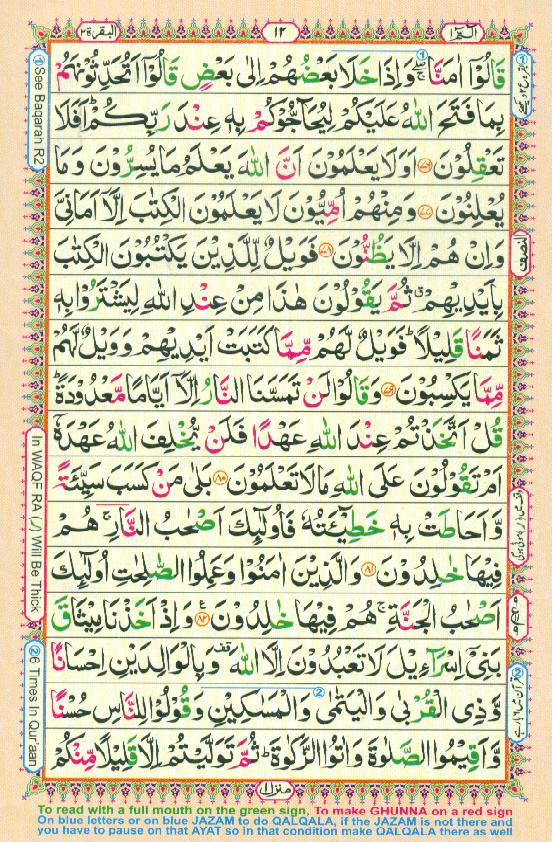 البقرة ٢
١٢
الٓمّٓ ١
قَالُوْٓا اٰمَنَّا ۚۖ وَاِذَا خَلَا بَعْضُهُمْ اِلٰى بَعْضٍ قَالُوْٓا اَتُحَدِّثُوْنَهُمْ
بِمَا فَتَحَ اللّٰهُ عَلَيْكُمْ لِيُحَآجُّوْكُمْ بِهٖ عِنْدَ رَبِّكُمْ ؕ اَفَلَا
تَعْقِلُوْنَ ﴿۷۶﴾ اَوَلَا يَعْلَمُوْنَ اَنَّ اللّٰهَ يَعْلَمُ مَا يُسِرُّوْنَ وَمَا
يُعْلِنُوْنَ ﴿۷۷﴾ وَمِنْهُمْ اُمِّيُّوْنَ لَا يَعْلَمُوْنَ الْكِتٰبَ اِلَّاۤ اَمَانِیَّ
وَاِنْ هُمْ اِلَّا يَظُنُّوْنَ ﴿۷۸﴾ فَوَيْلٌ لِّلَّذِيْنَ يَكْتُبُوْنَ الْكِتٰبَ
بِاَيْدِيْهِمْ ۗ ثُمَّ يَقُوْلُوْنَ هٰذَا مِنْ عِنْدِ اللّٰهِ لِيَشْتَرُوْا بِهٖ
ثَمَنًا قَلِيْلًا ؕ فَوَيْلٌ لَّهُمْ مِّمَّا كَتَبَتْ اَيْدِيْهِمْ وَوَيْلٌ لَّهُمْ
مِّمَّا يَكْسِبُوْنَ ﴿۷۹﴾ وَقَالُوْا لَنْ تَمَسَّنَا النَّارُ اِلَّاۤ اَيَّامًا مَّعْدُوْدَةً ؕ
قُلْ اَتَّخَذْتُمْ عِنْدَ اللّٰهِ عَهْدًا فَلَنْ يُّخْلِفَ اللّٰهُ عَهْدَهٗۤ
اَمْ تَقُوْلُوْنَ عَلَى اللّٰهِ مَا لَا تَعْلَمُوْنَ ﴿۸۰﴾ بَلٰى مَنْ كَسَبَ سَيِّئَةً
وَّاَحَاطَتْ بِهٖ خَطِيْٓئَتُهٗ فَاُولٰٓئِكَ اَصْحٰبُ النَّارِ ۚ هُمْ
فِيْهَا خٰلِدُوْنَ ﴿۸۱﴾ وَالَّذِيْنَ اٰمَنُوْا وَعَمِلُوا الصّٰلِحٰتِ اُولٰٓئِكَ
اَصْحٰبُ الْجَنَّةِ ۚ هُمْ فِيْهَا خٰلِدُوْنَ ﴿۸۲﴾ وَاِذْ اَخَذْنَا مِيْثَاقَ
بَنِیْۤ اِسْرَآءِيْلَ لَا تَعْبُدُوْنَ اِلَّا اللّٰهَ ۫ وَبِالْوَالِدَيْنِ اِحْسَانًا
وَّذِی الْقُرْبٰى وَالْيَتٰمٰى وَالْمَسٰكِيْنِ وَقُوْلُوْا لِلنَّاسِ حُسْنًا
وَّاَقِيْمُوا الصَّلٰوةَ وَاٰتُوا الزَّكٰوةَ ؕ ثُمَّ تَوَلَّيْتُمْ اِلَّا قَلِيْلًا مِّنْكُمْ
النصف
منزل ١
① See Baqarah R2
In WAQF RA (ر) Will Be Thick
② 6 Times In Qur'aan
To read with a full mouth on the green sign, To make GHUNNA on a red sign
On blue letters or on blue JAZAM to do QALQALA, if the JAZAM is not there and
you have to pause on that AYAT so in that condition make QALQALA there as well